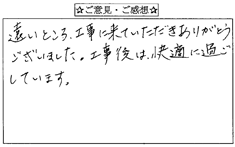 ☆ご意見・ご感想☆
遠いところ、工事に来ていただきありがとう
ございました。工事後は、快適に過ご
しています。